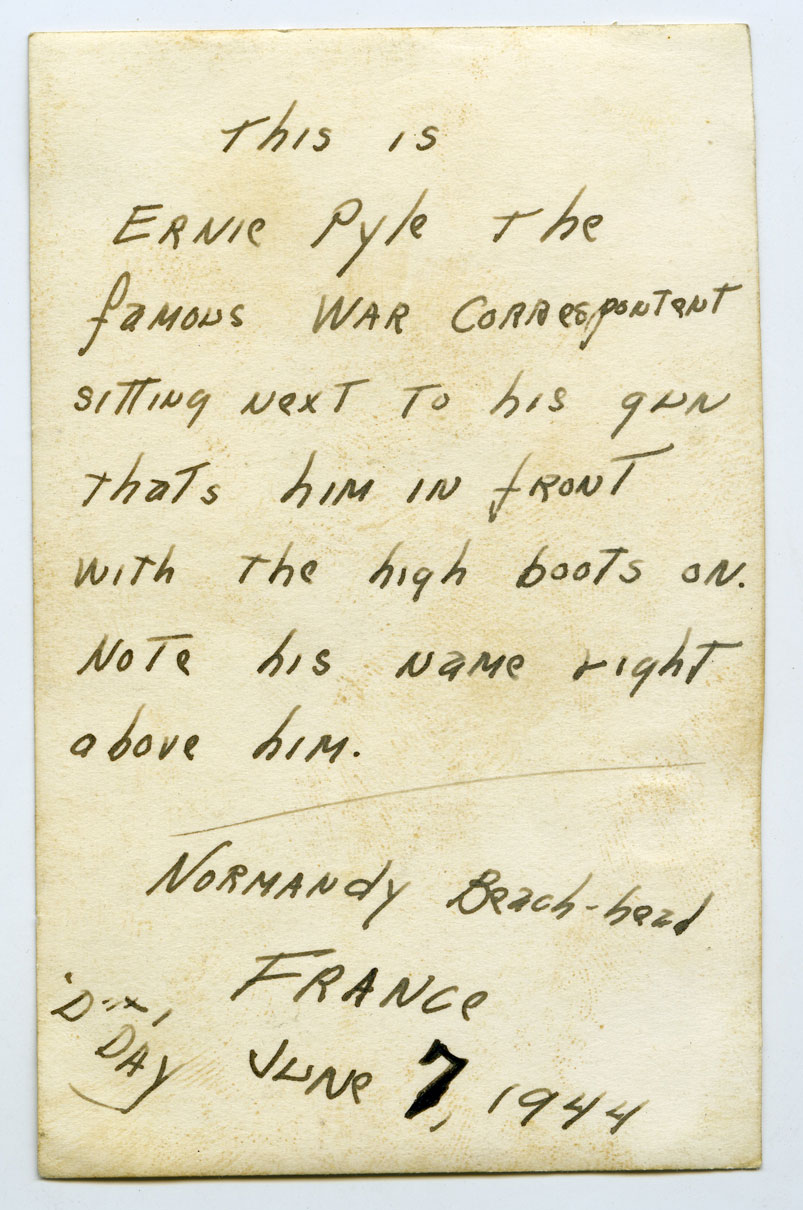 This is
Ernie Pyle the
famous War Correspontent
sitting next to his gun
thats him in front
with the high boots on.
Note his name right
above him.
Normandy Beach-head
France
"D"
Day June 7, 1944